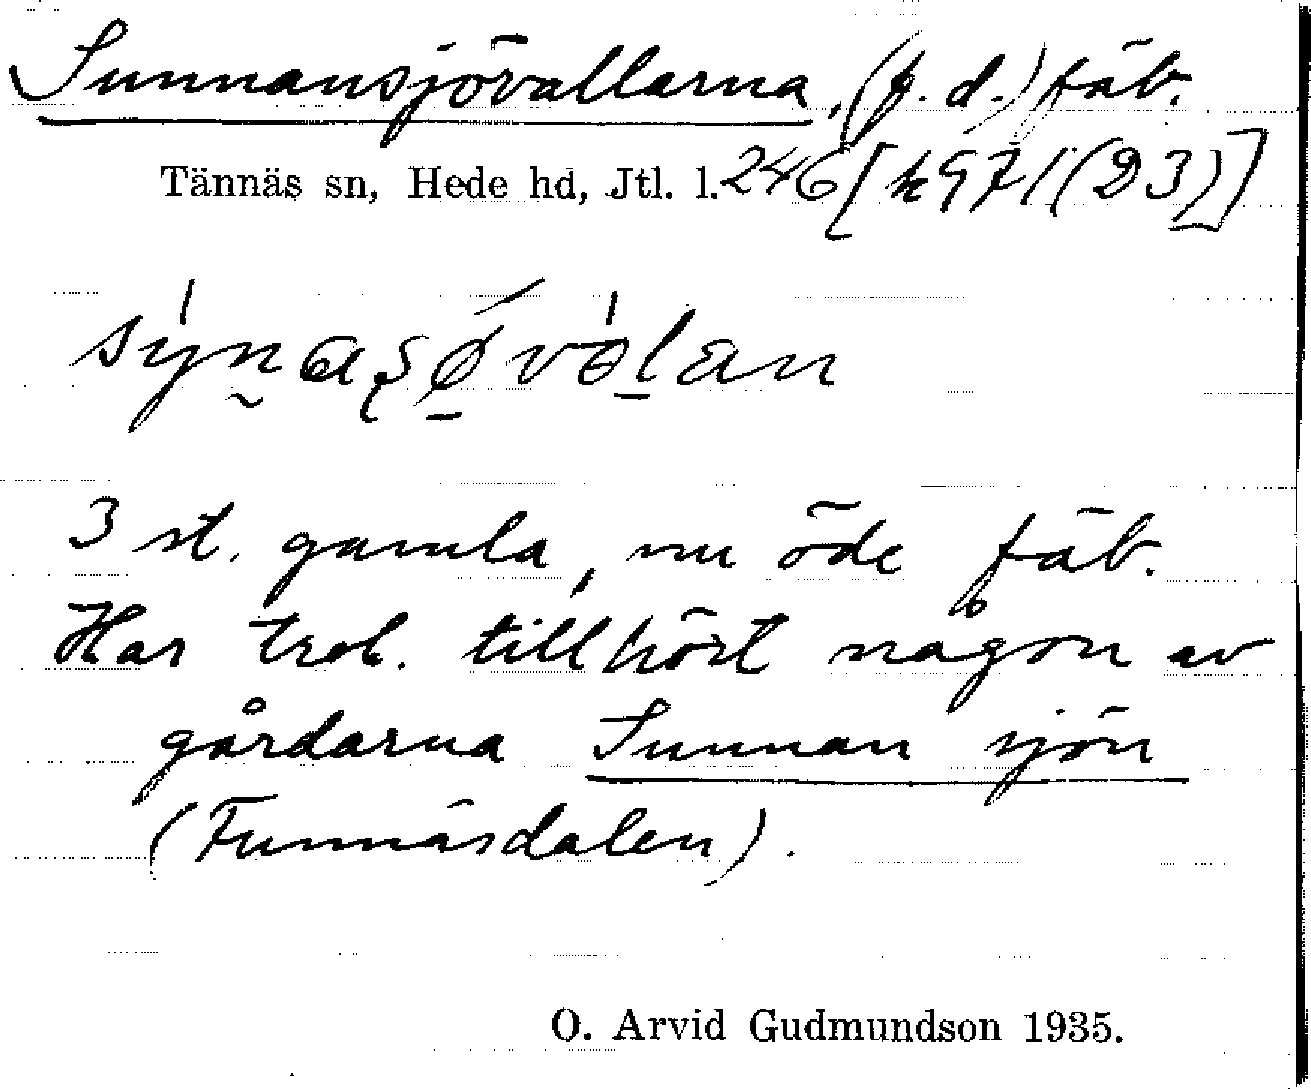 Sunnansjövallarna, (f. d.) fäb.
Tännäs sn, Hede hd, Jtl. l. 246 [k971(D3)]
3 st. gamla, nu öde fäb.
Har trol. tillhört någon av
gårdarna Sunnan sjön
(Funnäsdalen).
O. Arvid Gudmundson 1935.